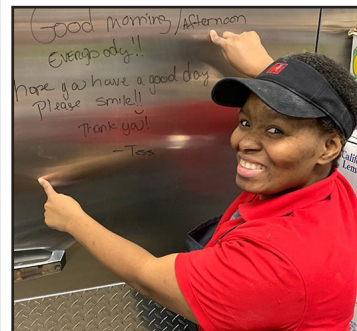 Good morning/Afternoon
Everybody!!
hope you have a good day
Please smile!!
Thank you!
- Tess
Califo
Lem